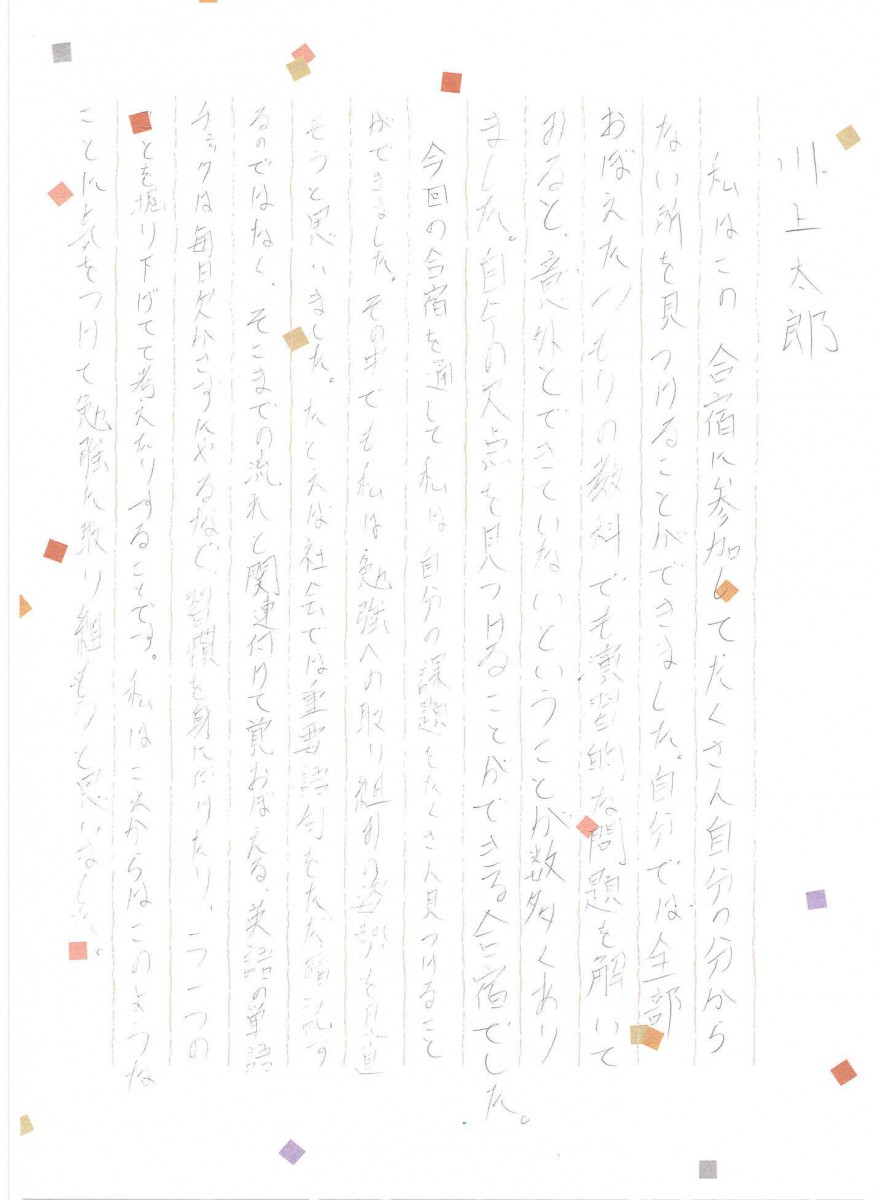 川上太郎
私はこの合宿に参加してたくさん自分の分から
ない所を見つけることができました。自分では全部
おぼえたつもりの教科でも演習的な問題を解いて
みると、意外とできていないということが数多くあり
ました。自分の欠点を見つけることができる合宿でした。
今回の合宿を通して私は自分の課題をたくさん見つけること
ができました。その中でも私は勉強への取り組みの姿勢を見直
そうと思いました。たとえば社会では重要語句をただ暗記す
るのではなく、そこまでの流れと関連付けて覚おぼえる、英語の単語
チェックは毎日欠かさずにやるなど、習慣を身につけたり、一つ一つの
ことを掘り下げてて考えたりすることです。私はこれからはこのような
ことに気をつけて勉強に取り組もうと思いました。